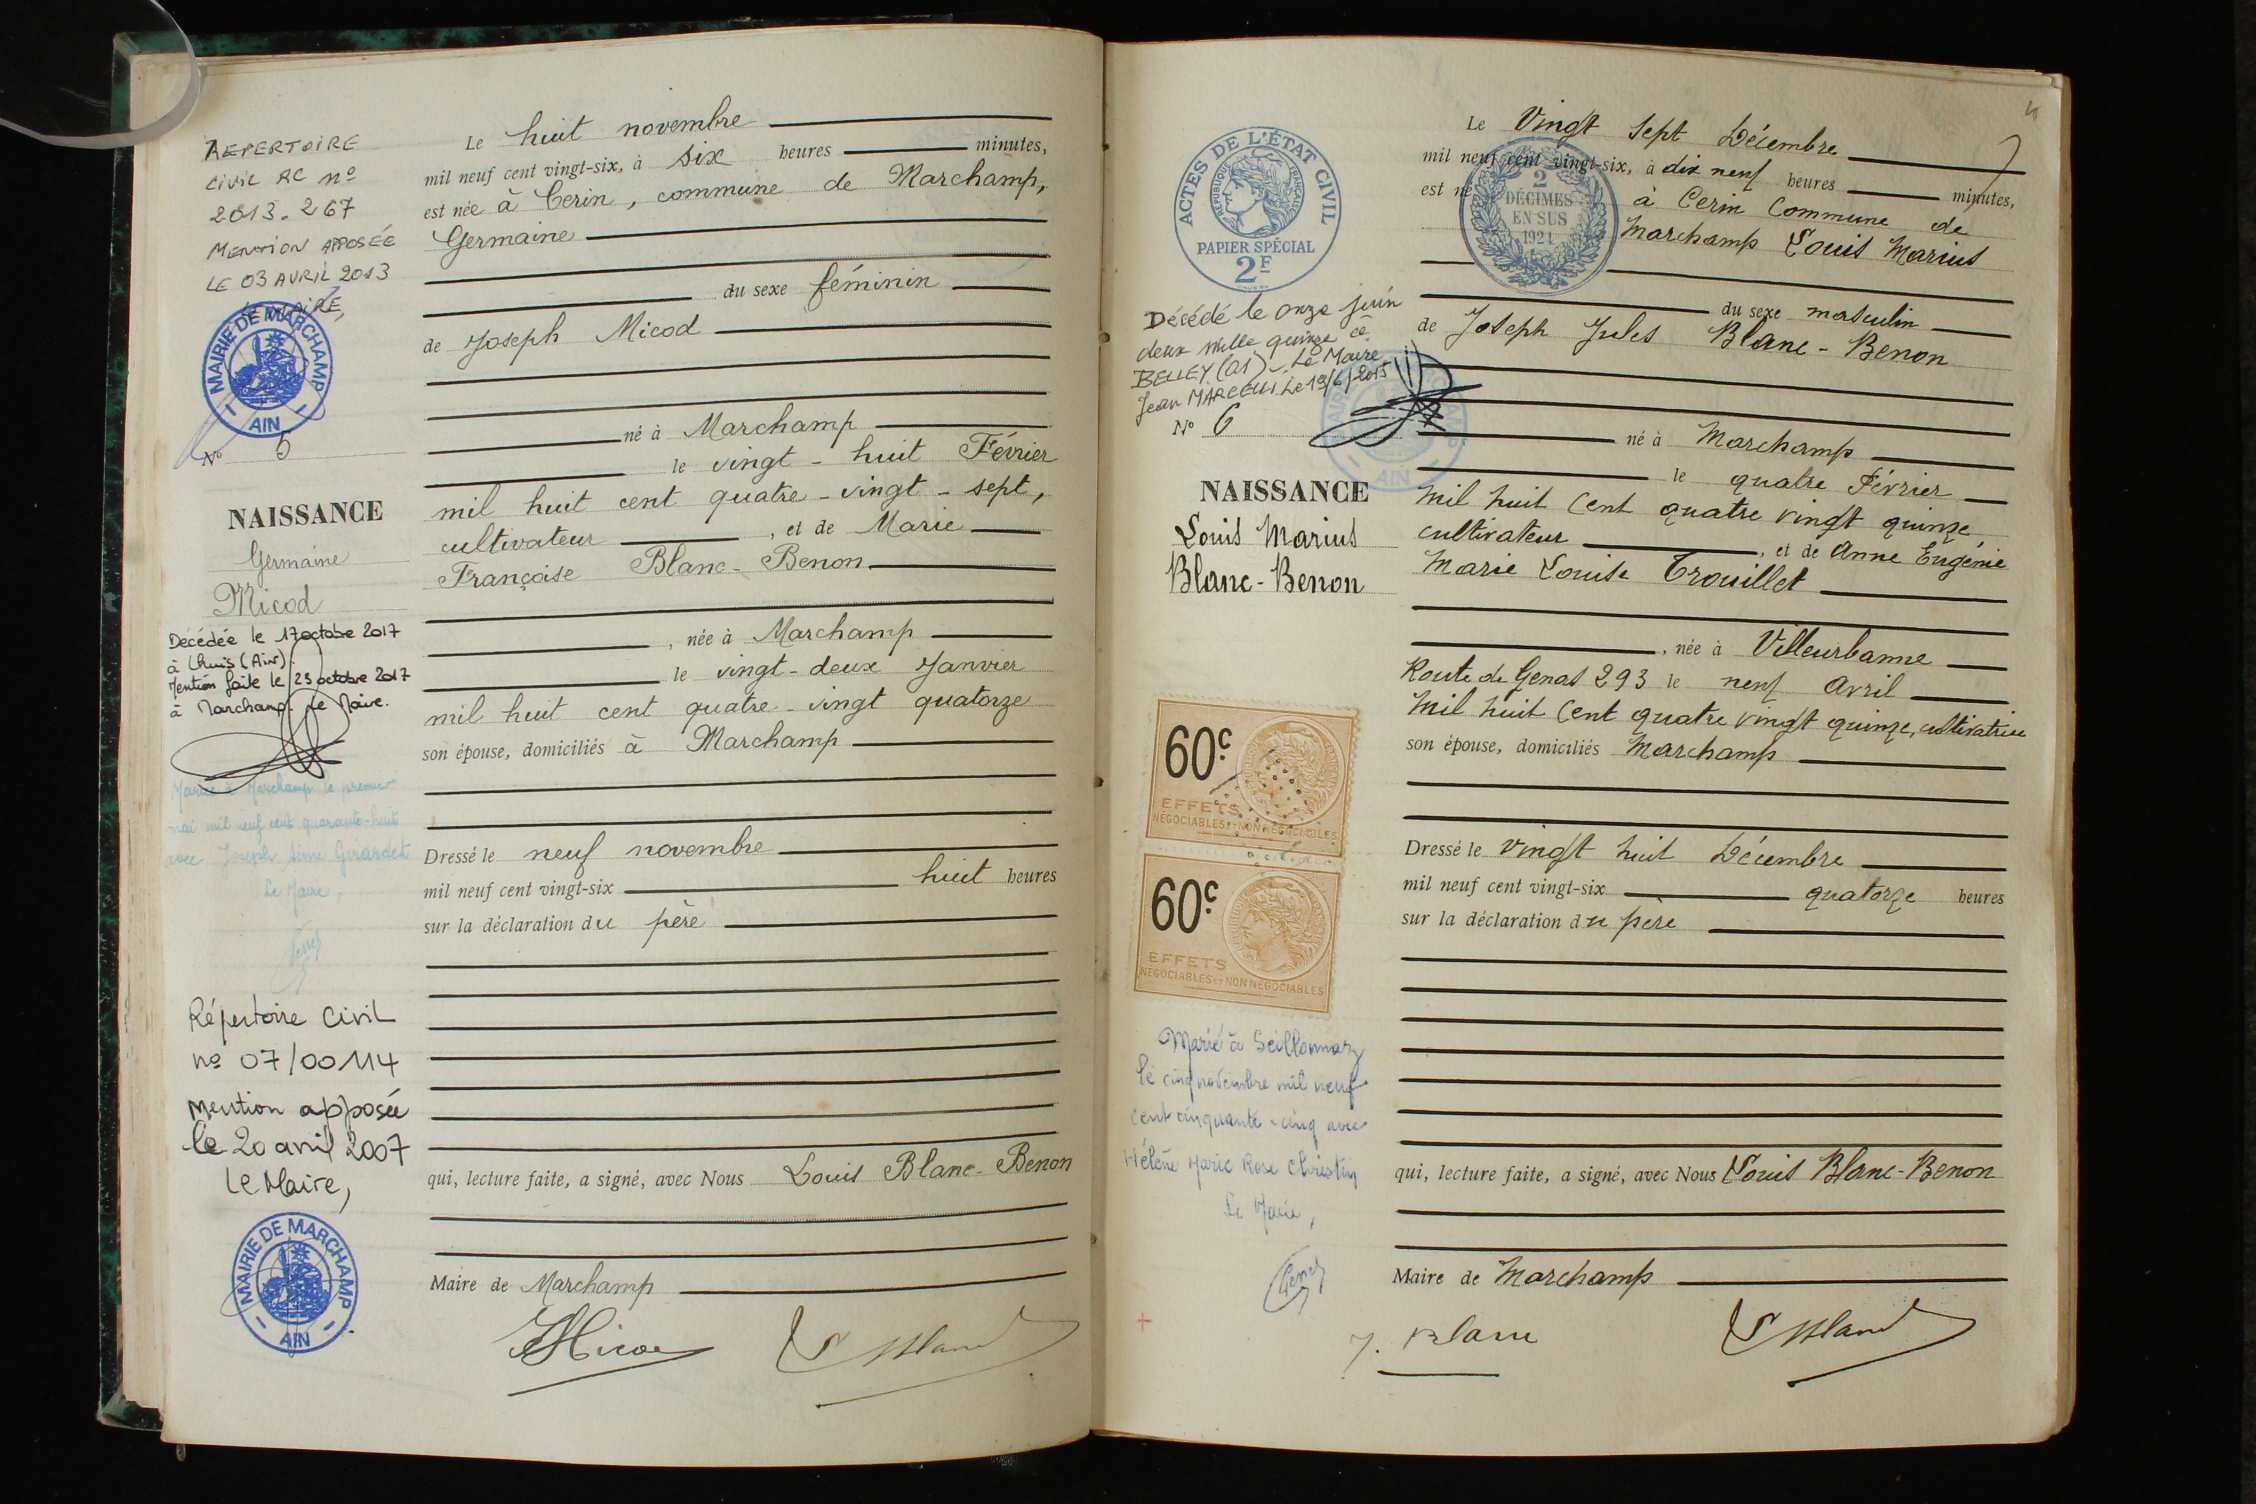 REPERTOIRE
CIVIL RC nº
2013-267
MENTION APPOSÉE
LE 03 AVRIL 2013
LE MAIRE,
MAIRIE DE MARCHAMP
AIN
Nº 5
NAISSANCE
Germaine
Micod
Décédée le 17 octobre 2017
à Lhuis (Ain).
Mention faite le 23 octobre 2017
à Marchamp. Le Maire.
Mariée à Marchamp le premier
mai mil neuf cent quarante-huit
avec Joseph Aimé Girardet
Le Maire,
Répertoire Civil
nº 07/00114
Mention apposée
le 20 avril 2007
Le Maire,
MAIRIE DE MARCHAMP
AIN
Le huit novembre
mil neuf cent vingt-six, à six heures minutes,
est née à Cerin, commune de Marchamp,
Germaine
du sexe féminin
de Joseph Micod
né à Marchamp
le vingt-huit Février
mil huit cent quatre-vingt-sept,
cultivateur, et de Marie
Françoise Blanc-Benon
, née à Marchamp
le vingt-deux Janvier
mil huit cent quatre-vingt quatorze
son épouse, domiciliés à Marchamp
Dressé le neuf novembre
mil neuf cent vingt-six huit heures
sur la déclaration du père
qui, lecture faite, a signé, avec Nous Louis Blanc-Benon
Maire de Marchamp
ACTES DE L'ÉTAT CIVIL
RÉPUBLIQUE FRANÇAISE
PAPIER SPÉCIAL
2F
2
DÉCIMES
EN SUS
1921
Décédé le onze juin
deux mille quinze à
BELLEY (01) - Le Maire
Jean MARCELLI Le 19/6/2015
AIN
Nº 6
NAISSANCE
Louis Marius
Blanc-Benon
60c
EFFETS
NÉGOCIABLES ET NON NÉGOCIABLES
60c
EFFETS
NÉGOCIABLES ET NON NÉGOCIABLES
Marié à Seillonnaz
le cinq novembre mil neuf
cent cinquante-cinq avec
Hélène Marie Rose Christin
Le Maire,
Le Vingt Sept Décembre
mil neuf cent vingt-six, à dix neuf heures minutes,
est né à Cerin Commune de
Marchamp Louis Marius
du sexe masculin
de Joseph Jules Blanc-Benon
né à Marchamp
le quatre Février
mil huit Cent quatre vingt quinze,
cultivateur, et de Anne Eugénie
Marie Louise Trouillet
, née à Villeurbanne
Route de Genas 293 le neuf Avril
Mil huit Cent quatre vingt quinze, cultivatrice
son épouse, domiciliés Marchamp
Dressé le vingt huit Décembre
mil neuf cent vingt-six quatorze heures
sur la déclaration du père
qui, lecture faite, a signé, avec Nous Louis Blanc-Benon
Maire de Marchamp
J. Blanc